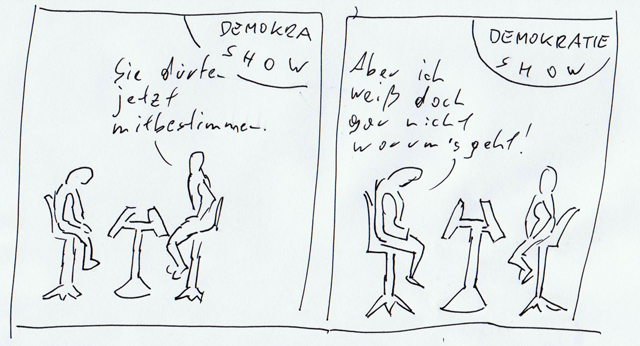 DEMOKRA
SHOW
Sie dürfen
jetzt
mitbestimmen.
DEMOKRATIE
SHOW
Aber ich
weiß doch
gar nicht
worum's geht!